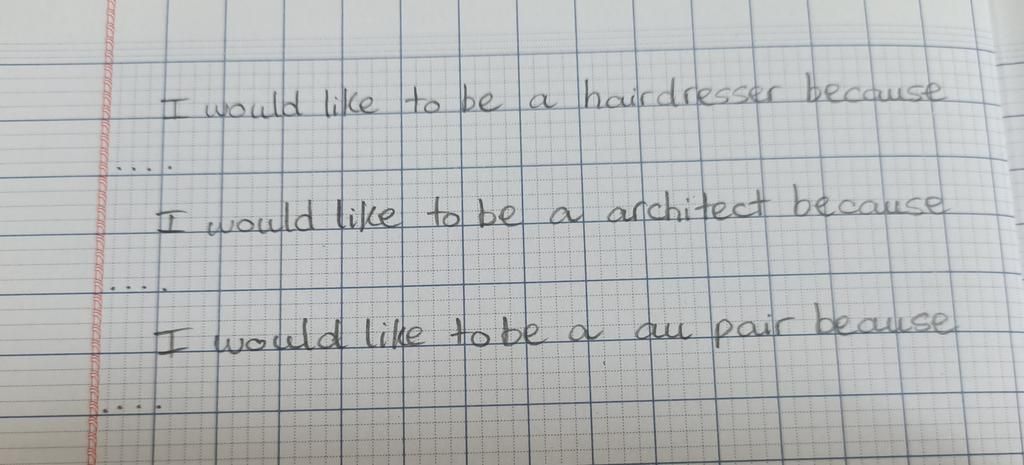 I would like to be a hairdresser because
....
I would like to be a architect because
....
I would like to be a au pair beause
....